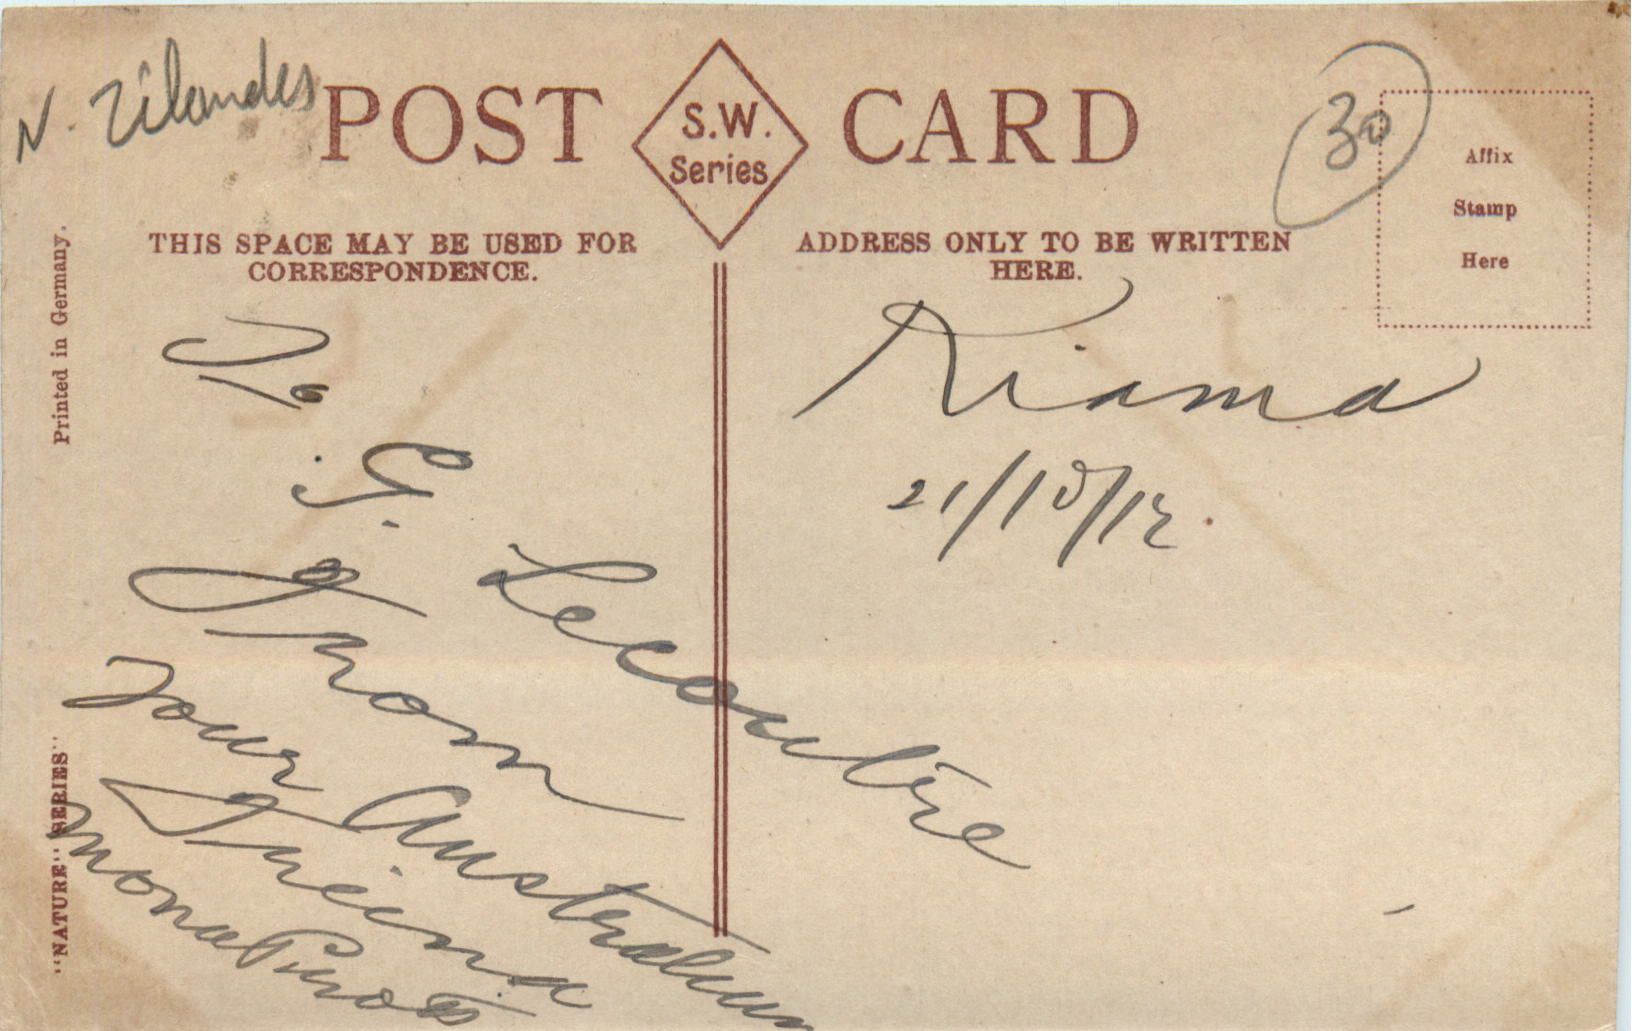 N. Zélandes
POST CARD
S.W.
Series
30
Affix
Stamp
Here
THIS SPACE MAY BE USED FOR
CORRESPONDENCE.
ADDRESS ONLY TO BE WRITTEN
HERE.
Printed in Germany.
"NATURE" SERIES"
To
G. Lecoutre
From
Your Australian
Friend
Mona
Kiama
21/10/12.